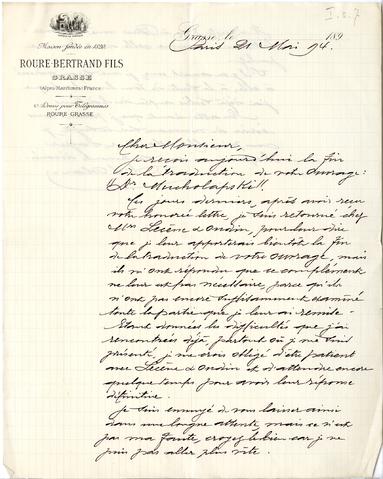 I.5.7
Maison fondée en 1820
ROURE-BERTRAND FILS
GRASSE
(Alpes Maritimes) France
Adresse pour Télégrammes
ROURE GRASSE
Grasse, le 189
Paris 21 Mai 94.
Cher Monsieur,
Je reçois aujourd'hui la fin
de la traduction de votre ouvrage:
"Dr Mucholapski"
Ces jours derniers, après avoir reçu
votre honorée lettre, je suis retourné chez
Mrs Lecène & Oudin, pour leur dire
que je leur apporterais bientôt la fin
de la traduction de votre ouvrage, mais
ils m'ont répondu que ce complément
ne leur est pas nécessaire, parce qu'ils
n'ont pas encore suffisamment examiné
toute la partie que je leur ai remise.
Etant données les difficultés que j'ai
rencontrées déjà, partout où je me suis
présenté, je me crois obligé d'être patient
avec Lecène & Oudin et d'attendre encore
quelque temps pour avoir leur réponse
définitive.
Je suis ennuyé de vous laisser ainsi
dans une longue attente, mais ce n'est
pas ma faute, croyez le bien car je ne
puis pas aller plus vite.